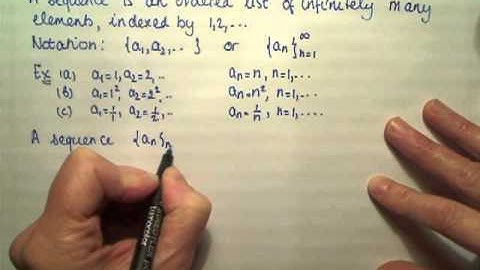 A sequence is an ordered list of infinitely many
elements, indexed by 1,2,...
Notation: {a₁,a₂,...} or {aₙ}ₙ₌₁^∞
Ex (a) a₁=1, a₂=2,.. aₙ=n, n=1,...
(b) a₁=1², a₂=2².. aₙ=n², n=1,...
(c) a₁=1/1, a₂=1/2,.. aₙ=1/n, n=1,...
A sequence {aₙ}ₙ